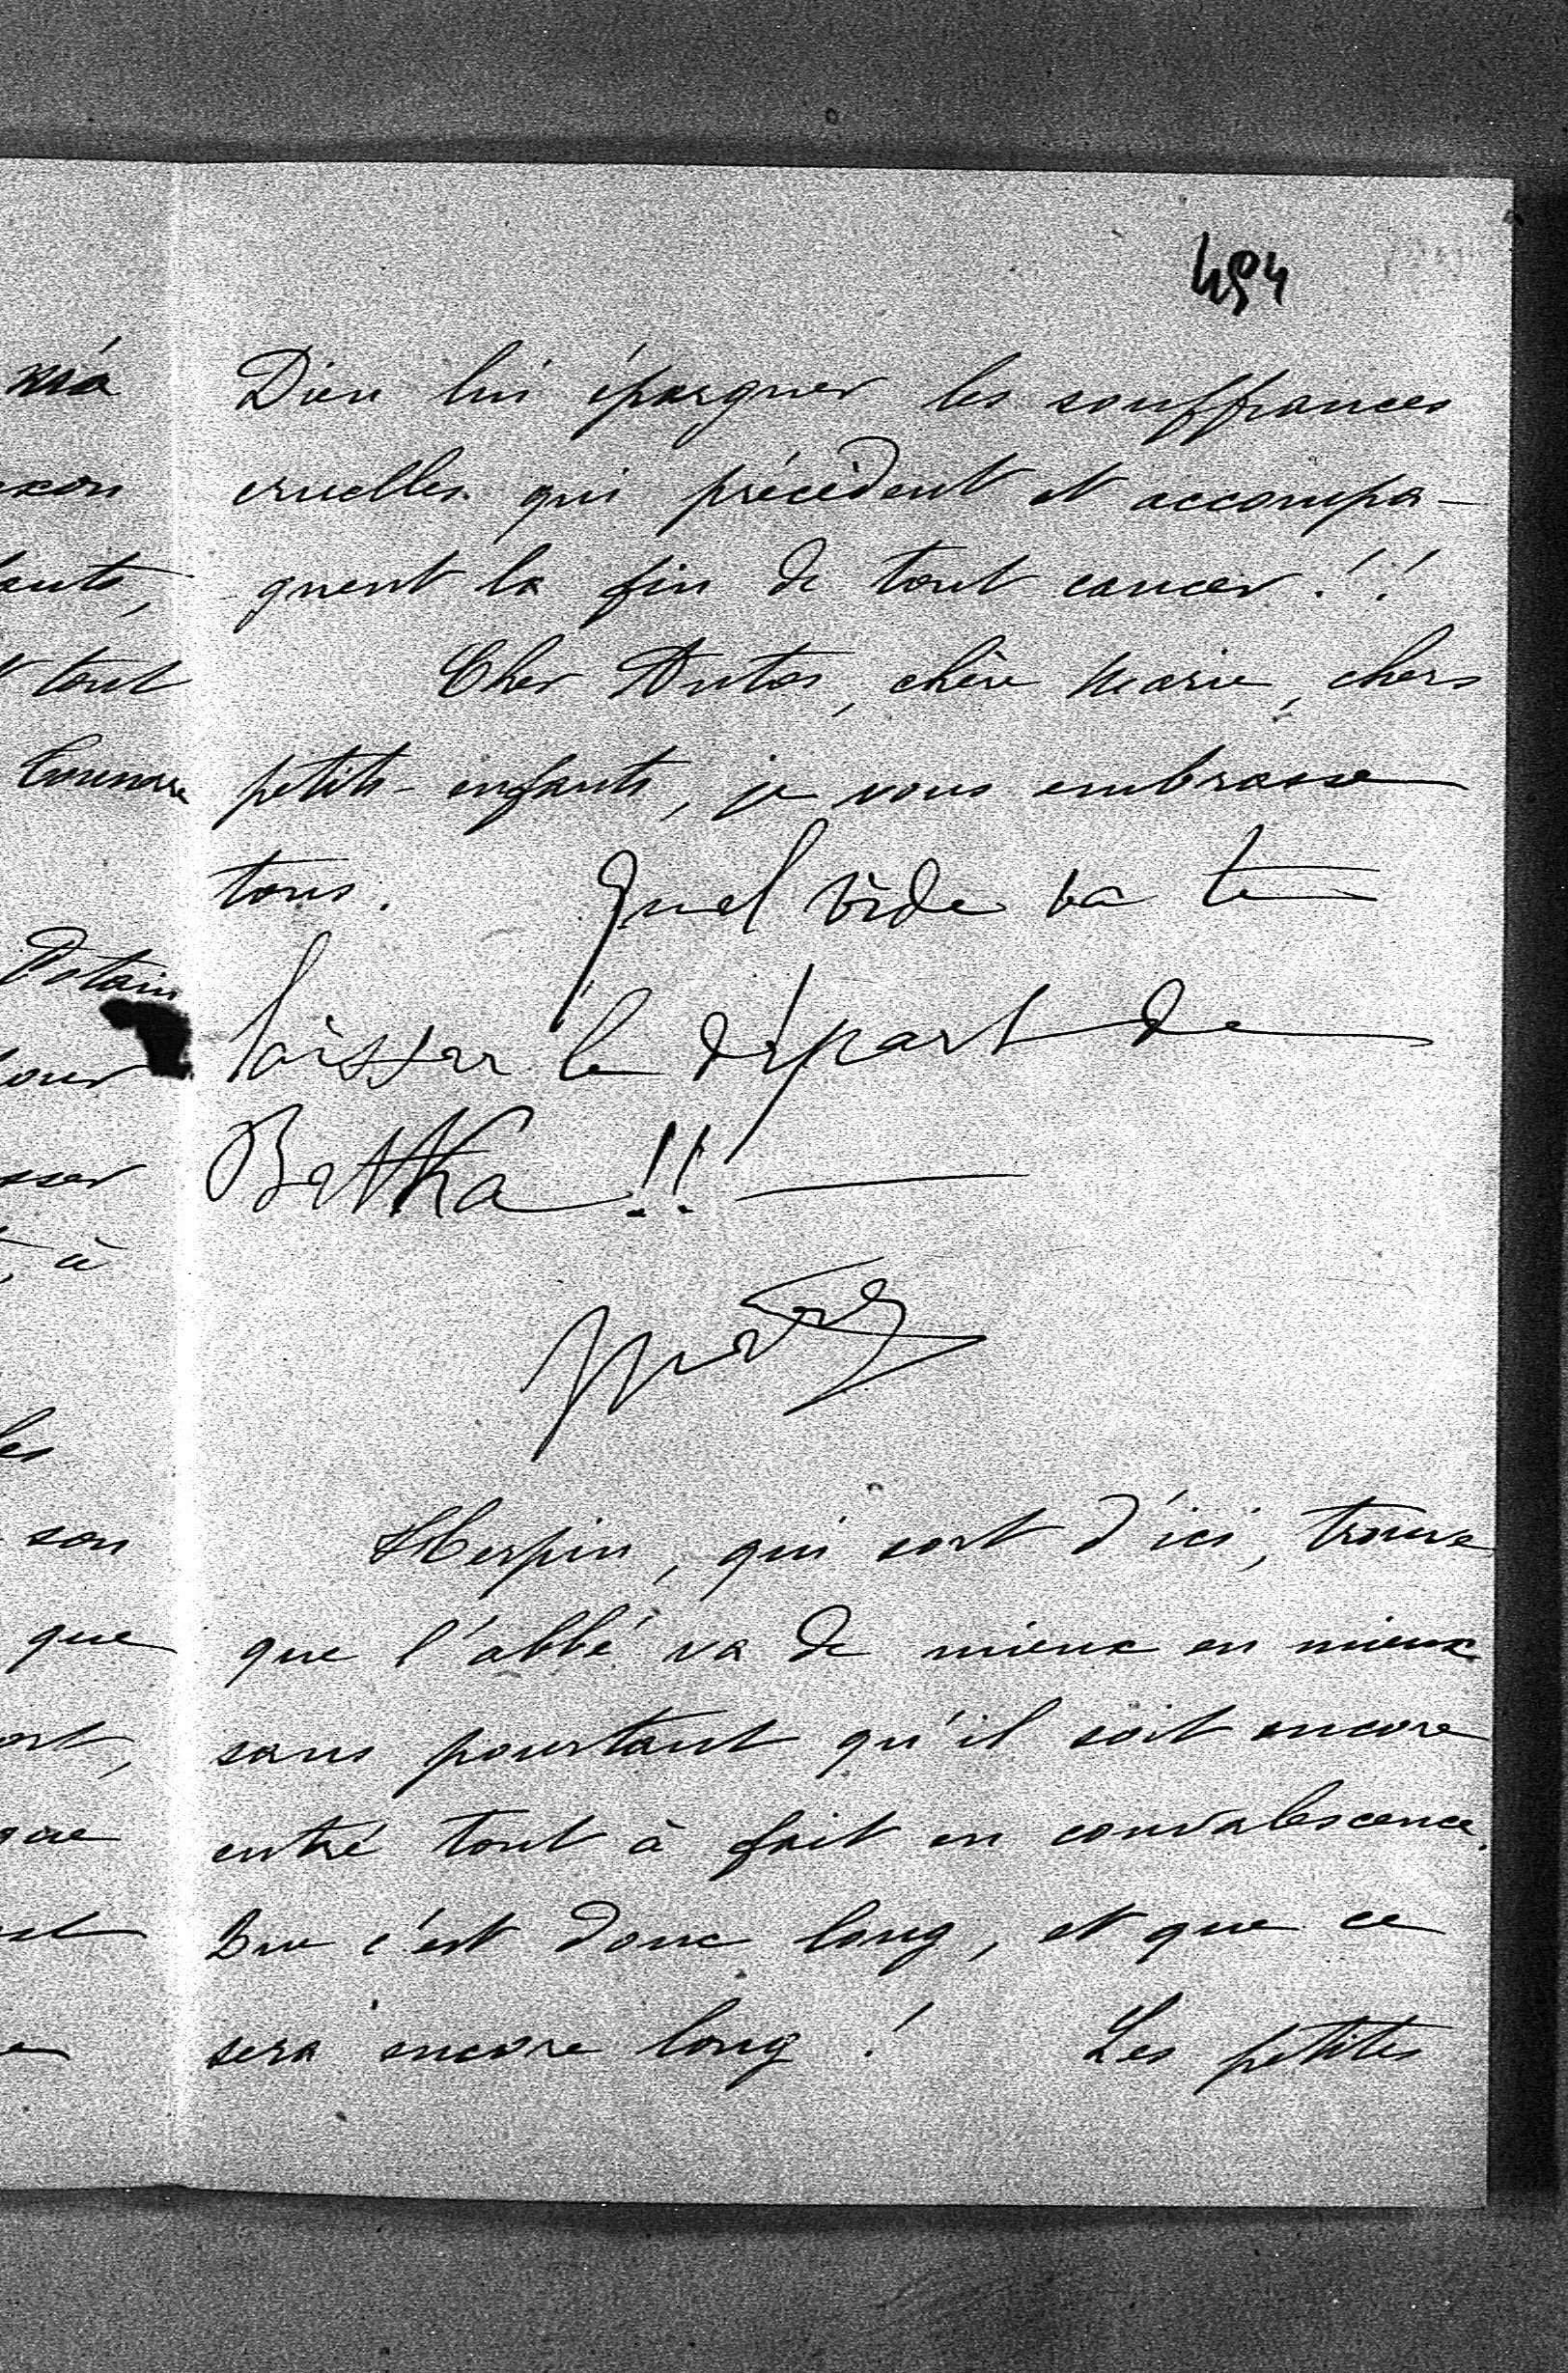 494
Dieu lui épargner les souffrances
cruelles qui précèdent et accompa-
gnent la fin de tout cancer !!
Cher Antos, chère Marie, chers
petits-enfants, je vous embrasse
tous. Quel vide va te
laisser le départ de
Betka !!
Herpin, qui sort d'ici, trouve
que l'abbé va de mieux en mieux
sans pourtant qu'il soit encore
entré tout à fait en convalescence.
Que c'est donc long, et que ce
sera encore long ! Les petites
tout
son
que